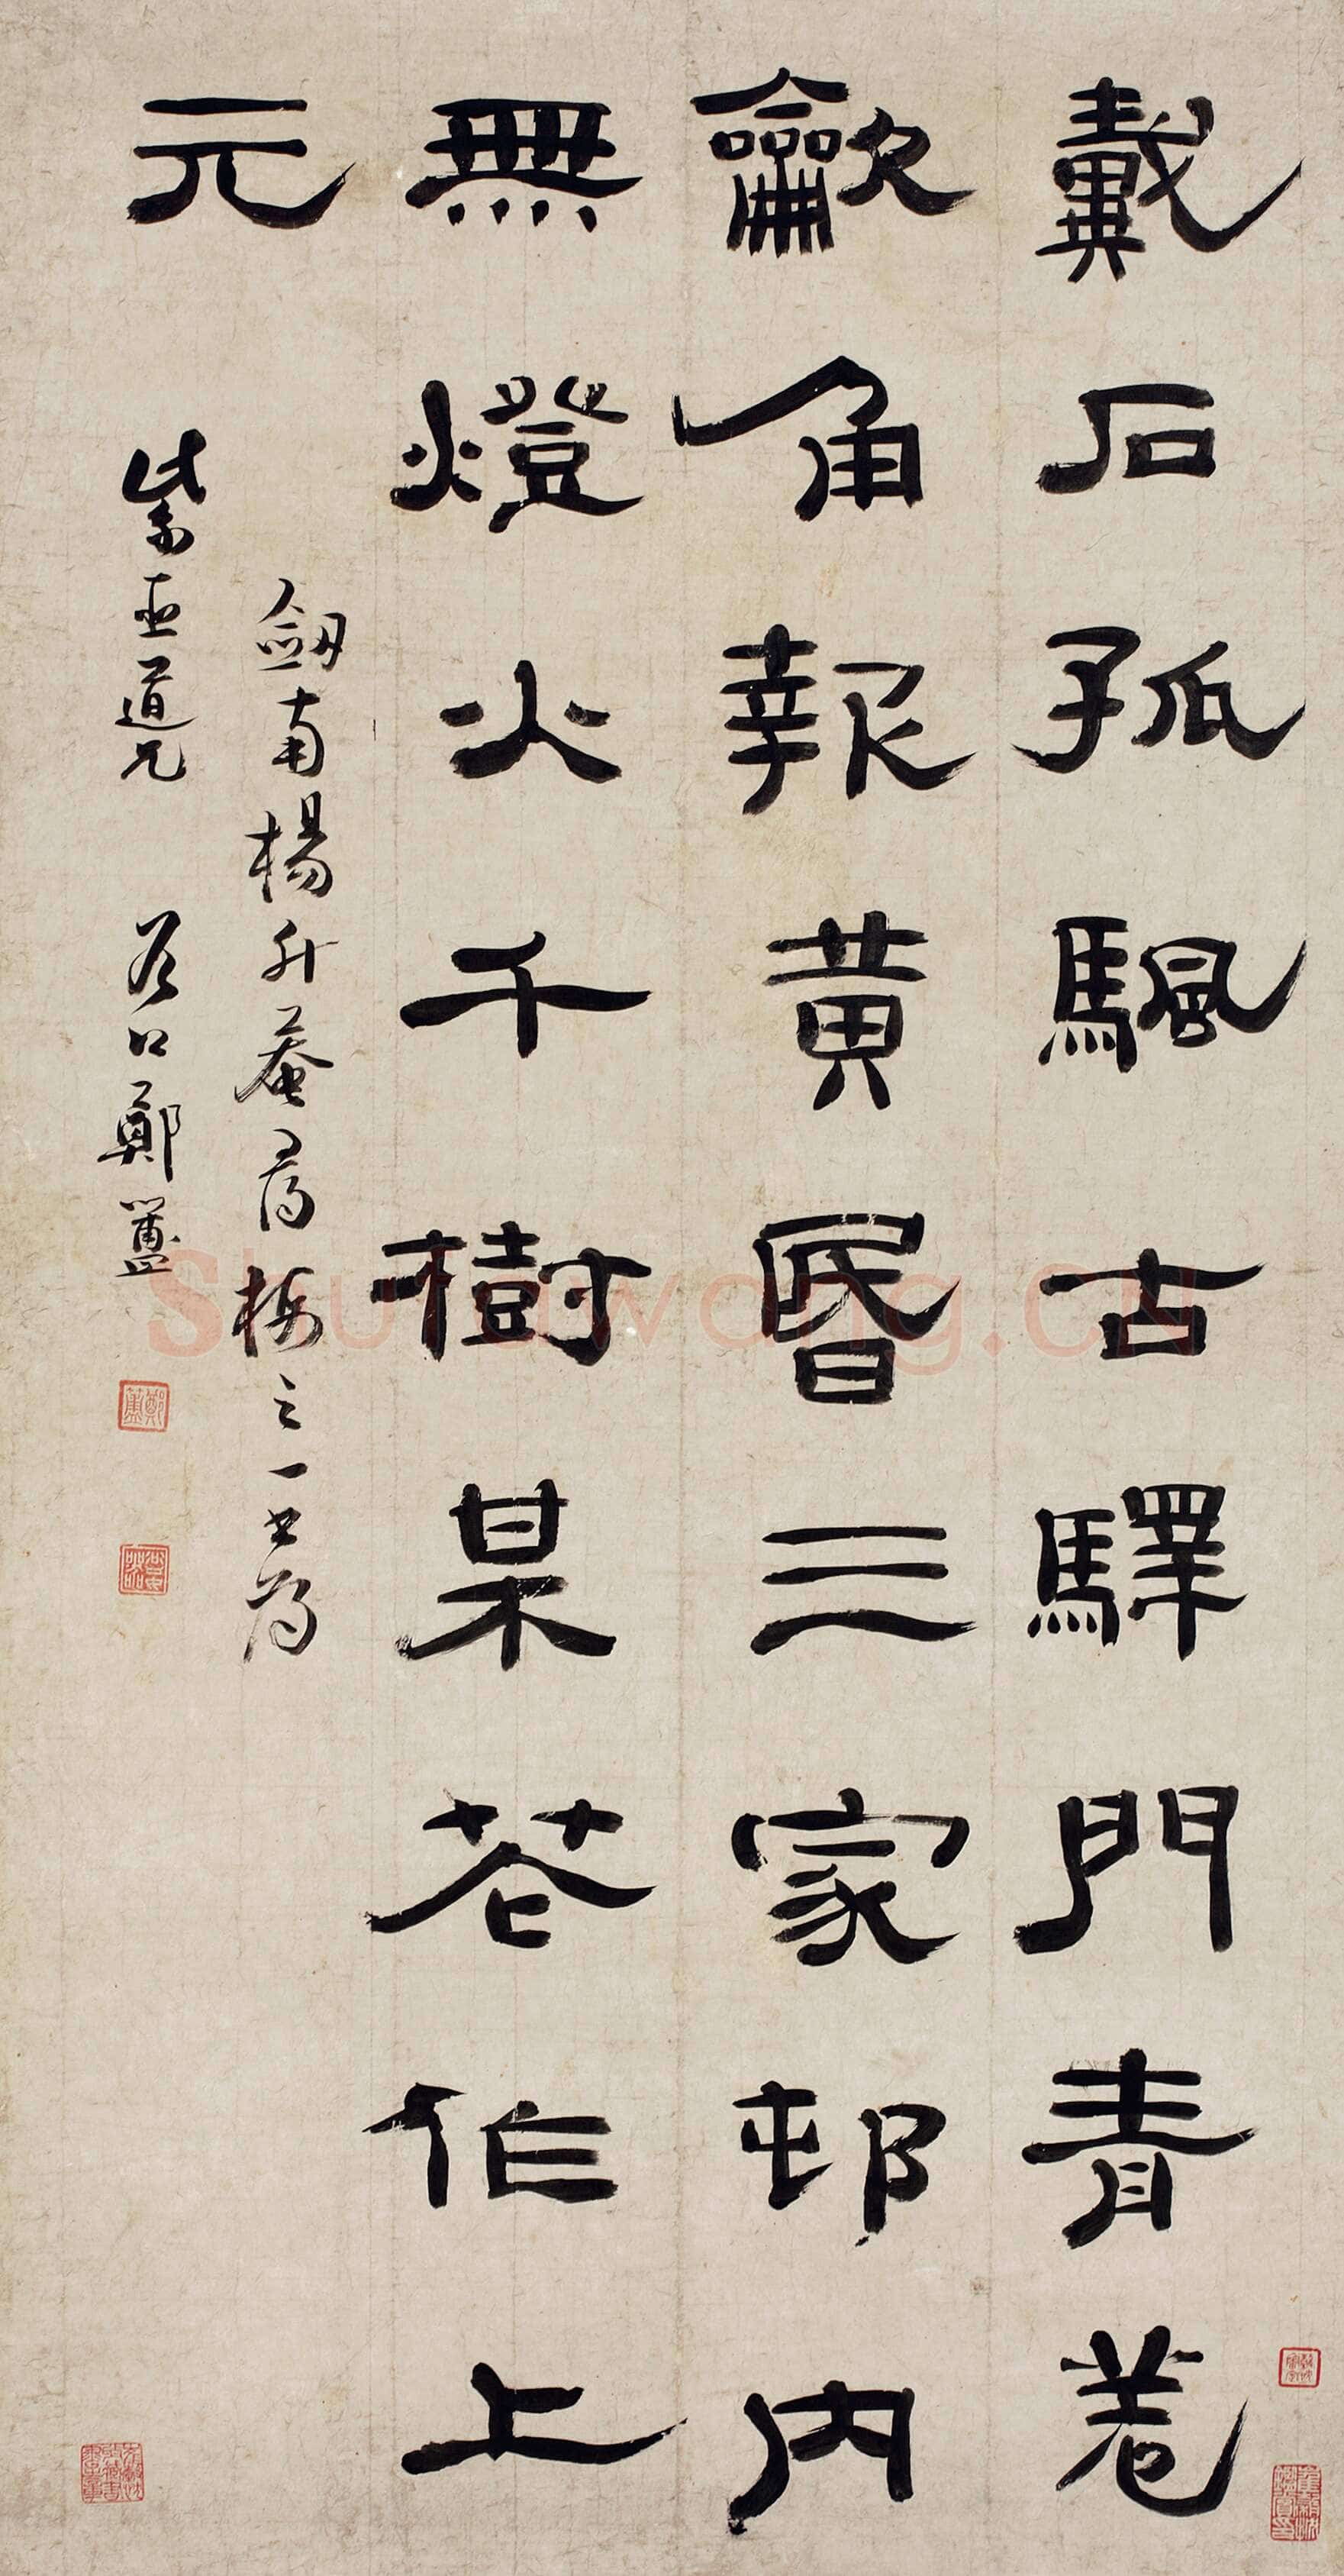 戴石孤颿古驛門青菴
龡角報黄昬三家邨内
無燈火千樹某花作上
元
劒南楊升菴尋梅之一書為
紫垣道兄 谷口鄭簠
Shufawang.cn